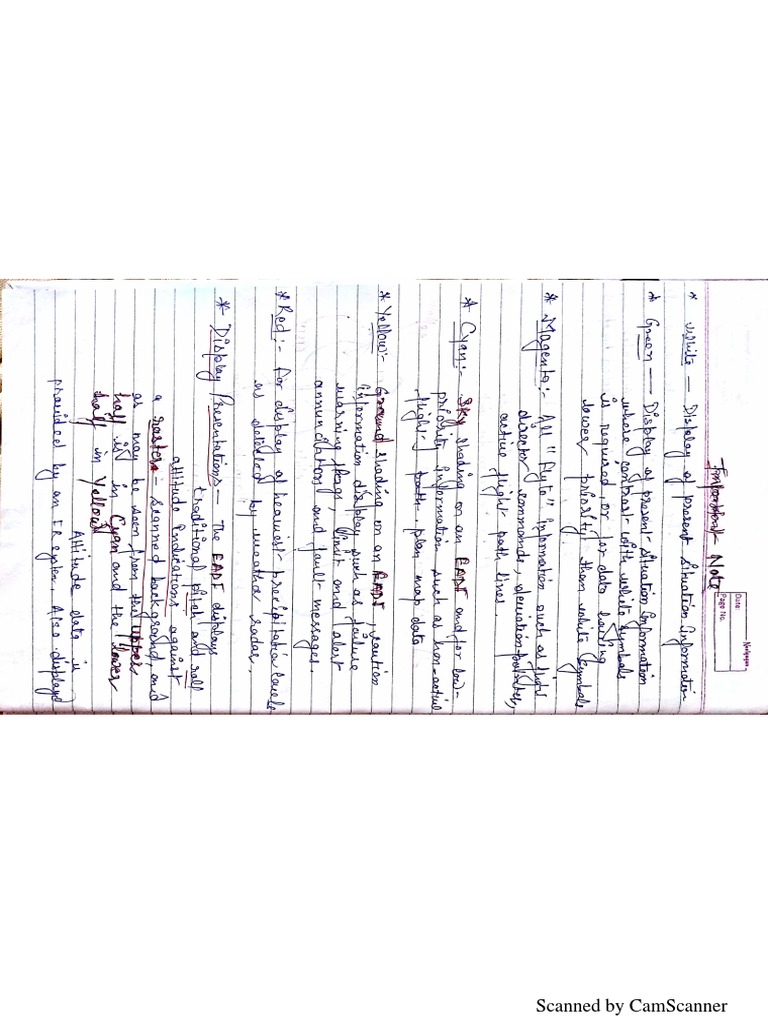 Date:
Page No.
Important Note
* White — Display of present situation information
* Green — Display of present situation information
where contrast with white symbols
is required, or for data having
lower priority than white symbols
* Magenta:- All "fly to" information such as flight
director commands, deviation pointers,
active flight path lines.
* Cyan:- Sky shading on an EADI and for low-
priority information such as non-active
flight path, plan map data
* Yellow:- Ground shading on an EADI, caution
information display such as failure
warning flags, limit and alert
annunciations and fault messages.
* Red:- For display of heaviest precipitation levels
as detected by weather radar.
* Display Presentations - The EADI displays
traditional pitch and roll
attitude indications against
a raster - scanned background, and
as may be seen from the upper
half is in Cyan and the lower
half in Yellow
Attitude data is
provided by an IR system. Also displayed
Scanned by CamScanner